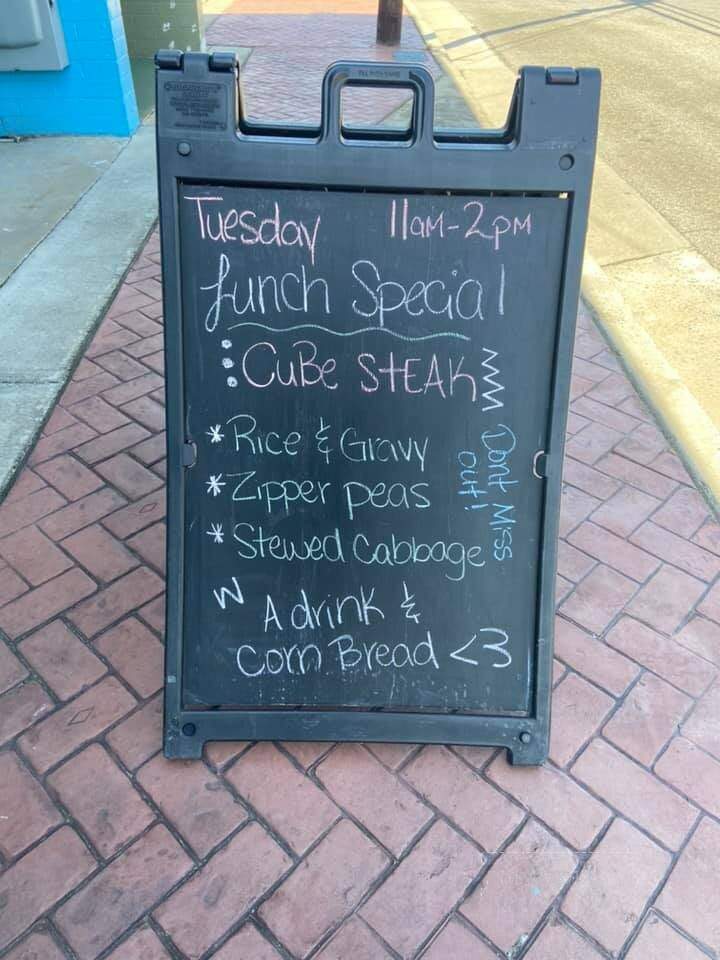 Tuesday 11AM-2PM
Lunch Special
CuBe StEAK
* Rice & Gravy
* Zipper peas
* Stewed Cabbage
Dont Miss
out!
W A drink &
Corn Bread <3